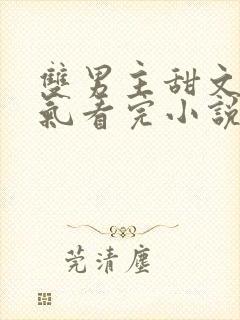 雙男主甜文
氣看完小說
莞清塵